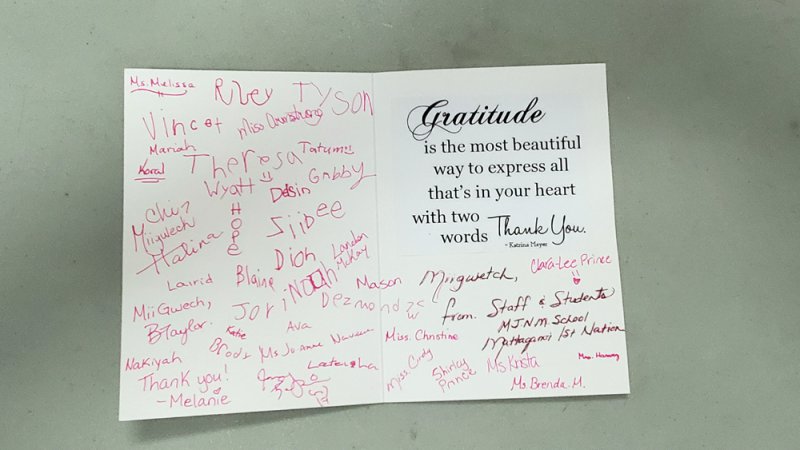 Ms. Melissa
Riley TYSON
Vincet Miss Armstrong
Mariah
Koral Theresa Tatum
Wyatt Desin Gabby
HOPE
Chi-
Miigwech
Siibee
Halina
Dion Landon
McKay
Lairid Blaine Noah Mason
MiiGwech, Jori Dezmond
BTaylor.
Katie Ava
Nakiyah Brody Ms Jo-Anne
Thank you!
-Melanie
Gratitude
is the most beautiful
way to express all
that's in your heart
with two
words Thank You.
~ Katrina Mayer
Miigwetch, Clara-Lee Prince
from Staff & Students
M.J.N.M. School
Mattagami 1st Nation
Miss. Christine
Miss. Cindy Shirley
Prince
Ms Krista
Ms. Brenda. M.